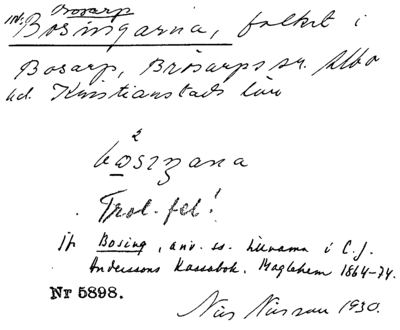 Bosarp
Bosingarna, folket i
Bosarp, Brösarps sn. Albo
hd. Kristianstads län
2
Trol. fel!
Bosing, anv. ss. binamn i C. J.
Anderssons Kassabok. Maglehem 1864-74.
Nr 5898.
Nils Nilsson 1930.